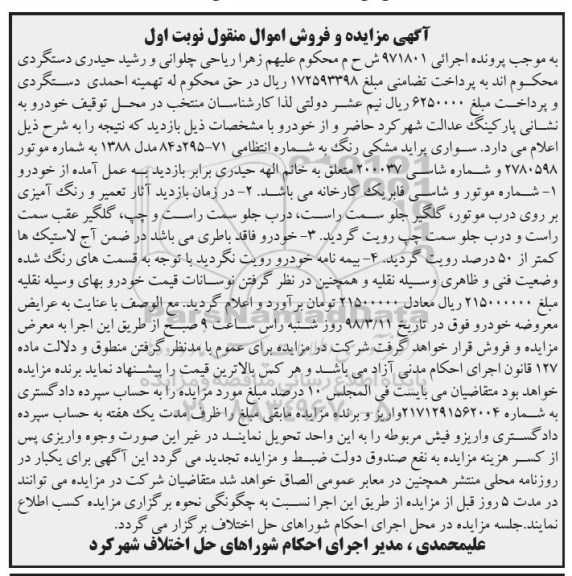 آگهی مزایده و فروش اموال منقول نوبت اول
به موجب پرونده اجرائی ۹۷۱۸۰۱ ش ح م محکوم علیهم زهرا ریاحی چلوانی و رشید حیدری دستگردی
محکوم اند به پرداخت تضامنی مبلغ ۱۷۲۵۹۳۳۹۸ ریال در حق محکوم له تهمینه احمدی دستگردی
و پرداخت مبلغ ۶۲۵۰۰۰۰ ریال نیم عشر دولتی لذا کارشناسان منتخب در محل توقیف خودرو به
نشانی پارکینگ عدالت شهر کرد حاضر و از خودرو با مشخصات ذیل بازدید که نتیجه را به شرح ذیل
اعلام می دارد. سواری پراید مشکی رنگ به شماره انتظامی ۷۱-۲۹۵د۸۴ مدل ۱۳۸۸ به شماره موتور
۲۷۸۰۵۹۸ و شماره شاسی ۲۰۰۰۳۷ متعلق به خانم الهه حیدری برابر بازدید به عمل آمده از خودرو
۱- شماره موتور و شاسی فابریک کارخانه می باشد. ۲- در زمان بازدید آثار تعمیر و رنگ آمیزی
بر روی درب موتور، گلگیر جلو سمت راست، درب جلو سمت راست و چپ، گلگیر عقب سمت
راست و درب جلو سمت چپ رویت گردید. ۳- خودرو فاقد باطری می باشد در ضمن آج لاستیک ها
کمتر از ۵۰ درصد رویت گردید. ۴- بیمه نامه خودرو رویت نگردید با توجه به قسمت های رنگ شده
وضعیت فنی و ظاهری وسیله نقلیه و همچنین در نظر گرفتن نوسانات قیمت خودرو بهای وسیله نقلیه
مبلغ ۲۱۵۰۰۰۰۰۰ ریال معادل ۲۱۵۰۰۰۰۰ تومان برآورد و اعلام گردید. مع الوصف با عنایت به عرایض
معروضه خودرو فوق در تاریخ ۹۸/۳/۱۱ روز شنبه راس ساعت ۹ صبح از طریق این اجرا به معرض
مزایده و فروش قرار خواهد گرفت شرکت در مزایده برای عموم با مدنظر گرفتن منطوق و دلالت ماده
۱۲۷ قانون اجرای احکام مدنی آزاد می باشد و هر کس بالاترین قیمت را پیشنهاد نماید برنده مزایده
خواهد بود متقاضیان می بایست فی المجلس ۱۰ درصد مبلغ مورد مزایده را به حساب سپرده دادگستری
به شماره ۲۱۷۱۲۹۱۵۶۲۰۰۴ واریز و برنده مزایده مابقی مبلغ را ظرف مدت یک هفته به حساب سپرده
دادگستری واریزو فیش مربوطه را به این واحد تحویل نمایند در غیر این صورت وجوه واریزی پس
از کسر هزینه مزایده به نفع صندوق دولت ضبط و مزایده تجدید می گردد این آگهی برای یکبار در
روزنامه محلی منتشر همچنین در معابر عمومی الصاق خواهد شد متقاضیان شرکت در مزایده می توانند
در مدت ۵ روز قبل از مزایده از طریق این اجرا نسبت به چگونگی نحوه برگزاری مزایده کسب اطلاع
نمایند.جلسه مزایده در محل اجرای احکام شوراهای حل اختلاف برگزار می گردد.
علیمحمدی ، مدیر اجرای احکام شوراهای حل اختلاف شهرکرد